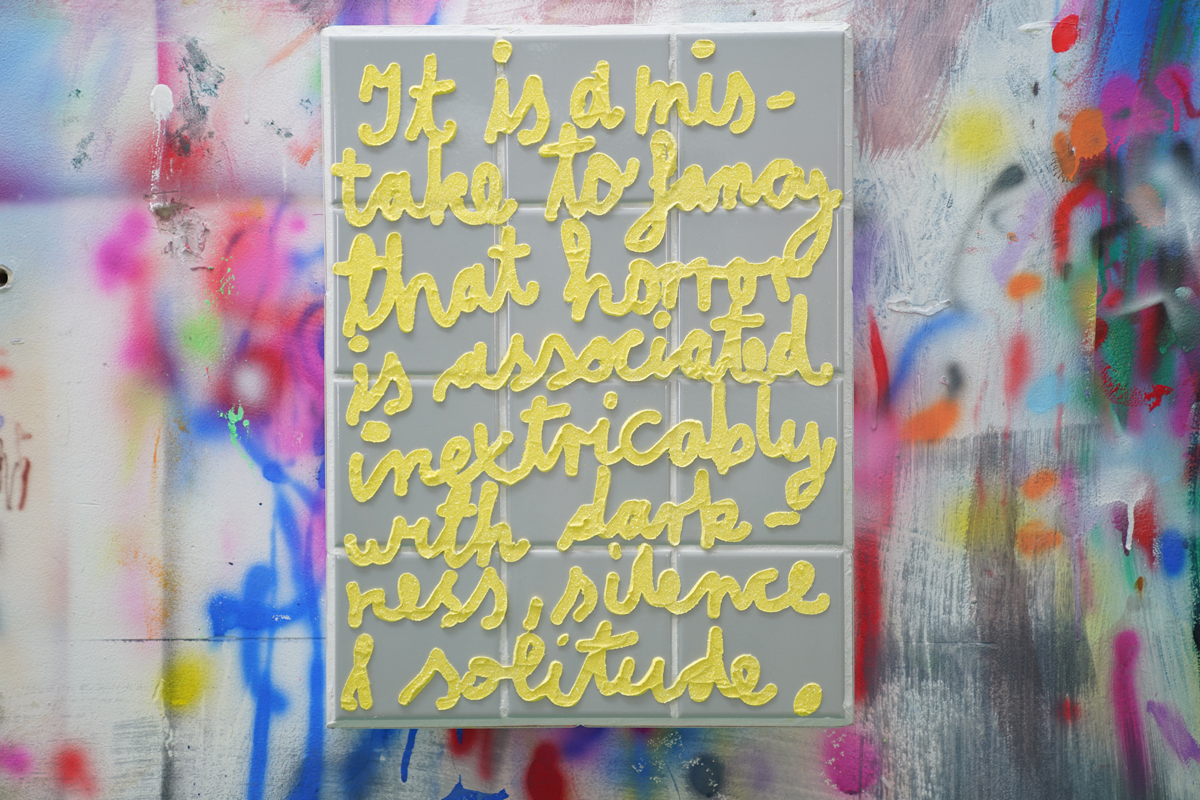 It is a mis-
take to fancy
that horror
is associated
inextricably
with dark-
ness, silence
& solitude.